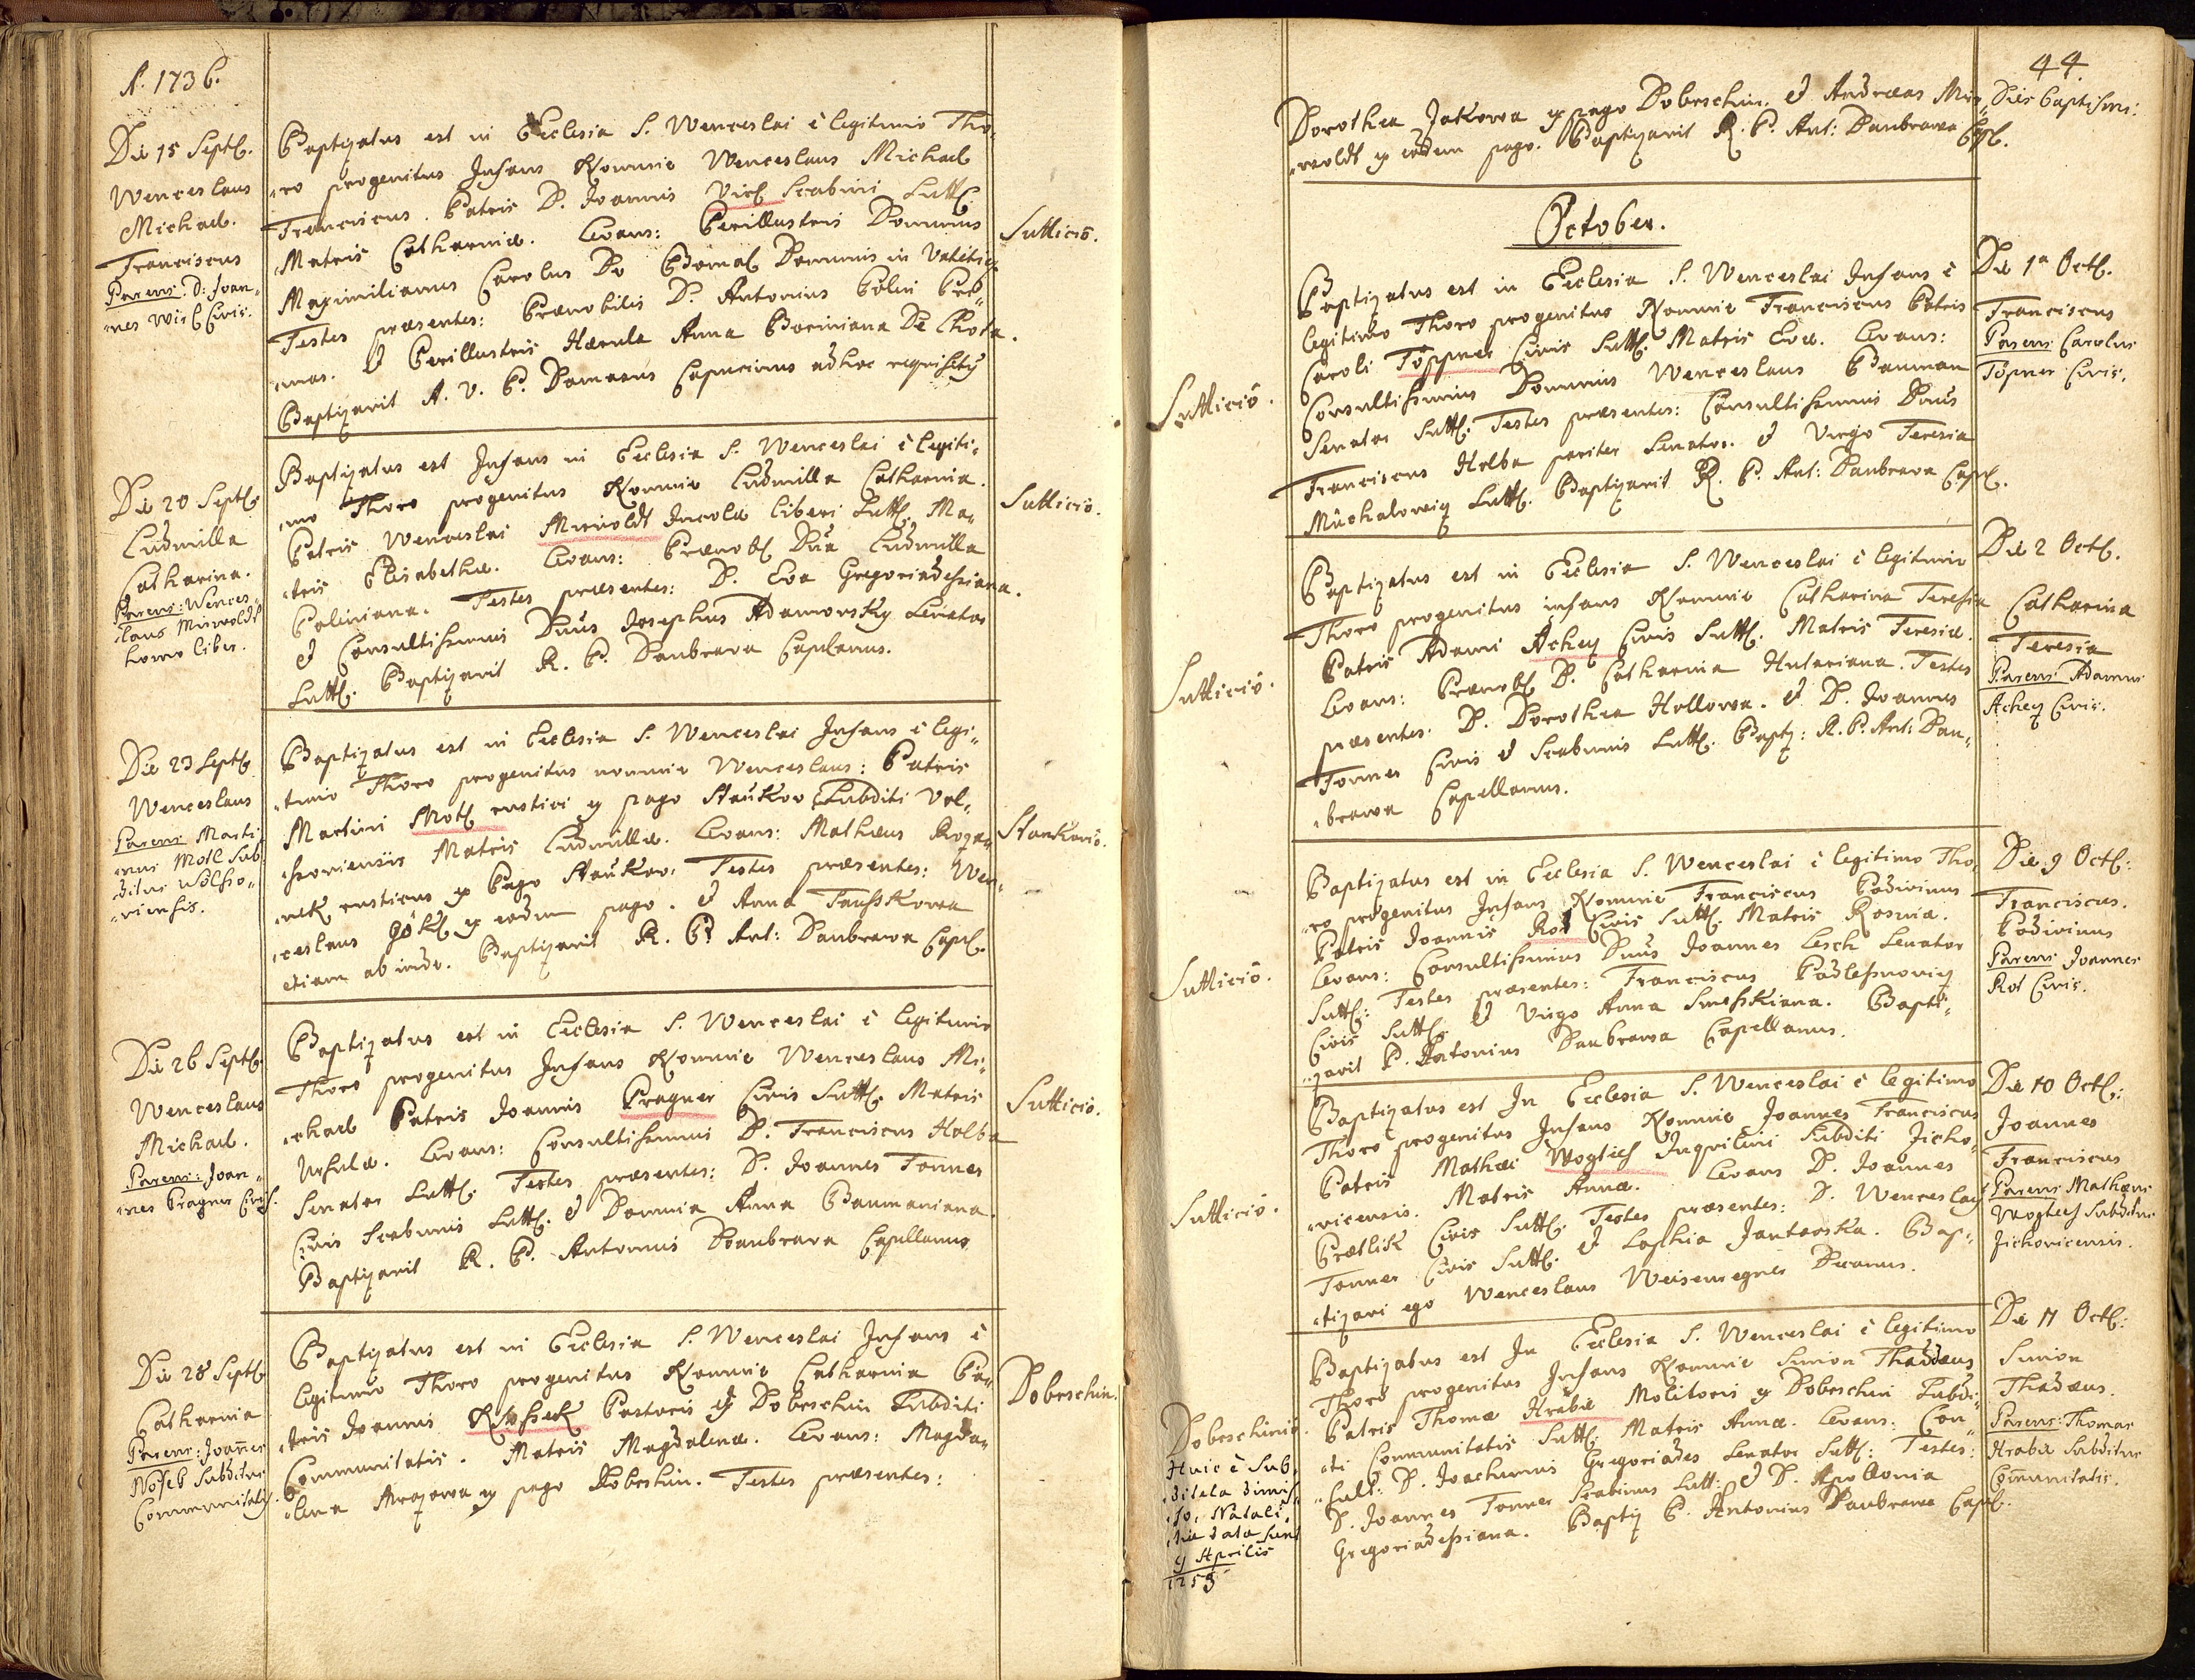 A. 1736.
Die 15 Septb.
Wenceslaus
Michael.
Franciscus
Parens. D: Joan-
-nes Wirl Civis.
Baptizatus est in Ecclesia S. Wenceslai è legitimo Tho-
-ro progenitus Infans Nomine Wenceslaus Michael
Franciscus. Patris D. Joannis Scabini Sutt.
Matris Catharinæ. Levans: Perillustris Dominus
Maximilianus Carolus De Dominus in
Testes præsentes: Prænobilis D. Antonius
& Perillustris Herula Anna De
Baptizavit A. V. P. Damasus Capucinus ad hoc requisitus
Sutticiô.
Die 20 Septb
Ludmilla
Catharina.
Parens: Wences-
-laus Mirwoldt
homo liber.
Baptizatus est Infans in Ecclesia S. Wenceslai è legiti-
-mo Thoro progenitus Nomine Ludmilla Catharina.
Patris Wenceslai Mirwoldt Incolæ liberi Sutt. Ma-
-tris Elisabethæ. Levans: Prænob. Dna Ludmilla
Testes præsentes: D. Eva Gregoriadessiana.
& Consultissimus Dnus Josephus Adamovsky Senator
Sutt. Baptizavit R. P. Daubrava Caplanus.
Sutticiô.
Die 23 Septb
Wenceslaus
Parens Marti-
-nus Motl Sub-
-ditus Wolsso-
-viensis.
Baptizatus est in Ecclesia S. Wenceslai Infans è legi-
-timo Thoro progenitus nomine Wenceslaus: Patris
Martini Motl rustici ex pago Staňkov Subditi Vol-
-ssoviensis Matris Ludmillæ. Levans: Mathæus
rusticus ex Pago Staňkov. Testes præsentes: Wen-
-ceslaus ex eodem pago. & Anna Tausskowa
etiam ab inde. Baptizavit R. P. Ant: Daubrawa Capl.
Stankoviô.
Die 26 Septb.
Wenceslaus
Michael.
Parens: Joan-
-nes Pragner Civis.
Baptizatus est in Ecclesia S. Wenceslai è legitimo
Thoro progenitus Infans Nomine Wenceslaus Mi-
-chael Patris Joannis Pragner Civis Sutt. Matris
Ursulæ. Levans: Consultissimus D. Franciscus Holba
Senator Sutt. Testes præsentes: D. Joannes Tonner
Civis Scabinus Sutt. & Domina Anna Baumaniana.
Baptizavit R. P. Antonius Daubrava Capellanus
Sutticiô.
Die 28 Septb
Catharina
Parens: Joannes
Subditus
Communitatis.
Baptizatus est in Ecclesia S. Wenceslai Infans è
legitimo Thoro progenitus Nomine Catharina Pa-
-tris Joannis Pastoris ex Dobrschin Subditi
Communitatis. Matris Magdalenæ. Levans: Magda-
-lena ex pago Dobrschin. Testes præsentes:
Dobrschin.
44.
Dorothea Jakowa ex pago Dobrschin. & Andreas Mir-
-woldt ex eodem pago. Baptizavit R. P. Ant: Daubrawa Cpl.
Dies baptismi:
October.
Sutticiô.
Baptizatus est in Ecclesia S. Wenceslai Infans è
legitimo Thoro progenitus Nomine Franciscus Patris
Caroli Töppner Civis Sutt. Matris Evæ. Levans:
Consultissimus Dominus Wenceslaus Bauman
Senator Sutt. Testes præsentes: Consultissimus Dnus
Franciscus Holba pariter Senator. & Virgo Teresia
Sutt. Baptizavit R. P. Ant: Daubrava Capl.
Die 1a Octb.
Franciscus
Parens Carolus
Töpner Civis.
Sutticiô.
Baptizatus est in Ecclesia S. Wenceslai è legitimo
Thoro progenitus infans Nomine Catharina Teresia
Patris Adami Achcy Civis Sutt. Matris Teresiæ.
Levans: Prænob. D. Catharina Hutariana. Testes
præsentes: D. Dorothea Hollowa. & D. Joannes
Tonner Civis & Scabinus Sutt. Baptz: R. P. Ant: Dau-
-brawa Capellanus.
Die 2 Octb.
Catharina
Teresia
Parens Adamus
Achcy Civis.
Sutticiô.
Baptizatus est in Ecclesia S. Wenceslai è legitimo Tho-
-ro progenitus Infans Nomine Franciscus Podivinus
Patris Joannis Rot Civis Sutt. Matris Rosina.
Levans: Consultissimus Dnus Joannes Lesch Senator
Sutt: Testes præsentes: Franciscus
Civis Sutt. & Virgo Anna Bapti-
-zavit P. Antonius Daubrawa Capellanus.
Die 9 Octb:
Franciscus.
Podivinus
Parens Joannes
Rot Civis.
Sutticiô.
Baptizatus est In Ecclesia S. Wenceslai è legitimo
Thoro progenitus Infans Nomine Joannes Franciscus
Patris Mathæi Wogtiech Inquilini Subditi Zicho-
-vicensis. Matris Annæ. Levans D. Joannes
Civis Sutt. Testes præsentes: D. Wenceslaus
Tonner Civis Sutt. & Sophia Jantovska. Bap-
-tizavi ego Wenceslaus Decanus.
Die 10 Octb.:
Joannes
Franciscus
Parens Mathæus
Wogtiech Subditus
Zichovicensis.
Dobrschiniô.
Huic è Sub-
-ditela dimis-
-so, Natali-
-tiæ datæ sunt
9 Aprilis
1753
Baptizatus est In Ecclesia S. Wenceslai è legitimo
Thoro progenitus Infans Nomine Simon Thaddæus
Patris Thomæ Hrabie Molitoris ex Dobrschin Subdi-
-ti Communitatis Sutt. Matris Annæ. Levans: Con-
-sult: D. Joachimus Gregoriades Senator Sutt: Testes:
D. Joannes Tonner Scabinus Sutt: & D. Apollonia
Gregoriadessiana. Baptiz P. Antonius Daubrawa Capl.
Die 11 Octb:
Simon
Thadæus.
Parens: Thomas
Hrabie Subditus
Communitatis.